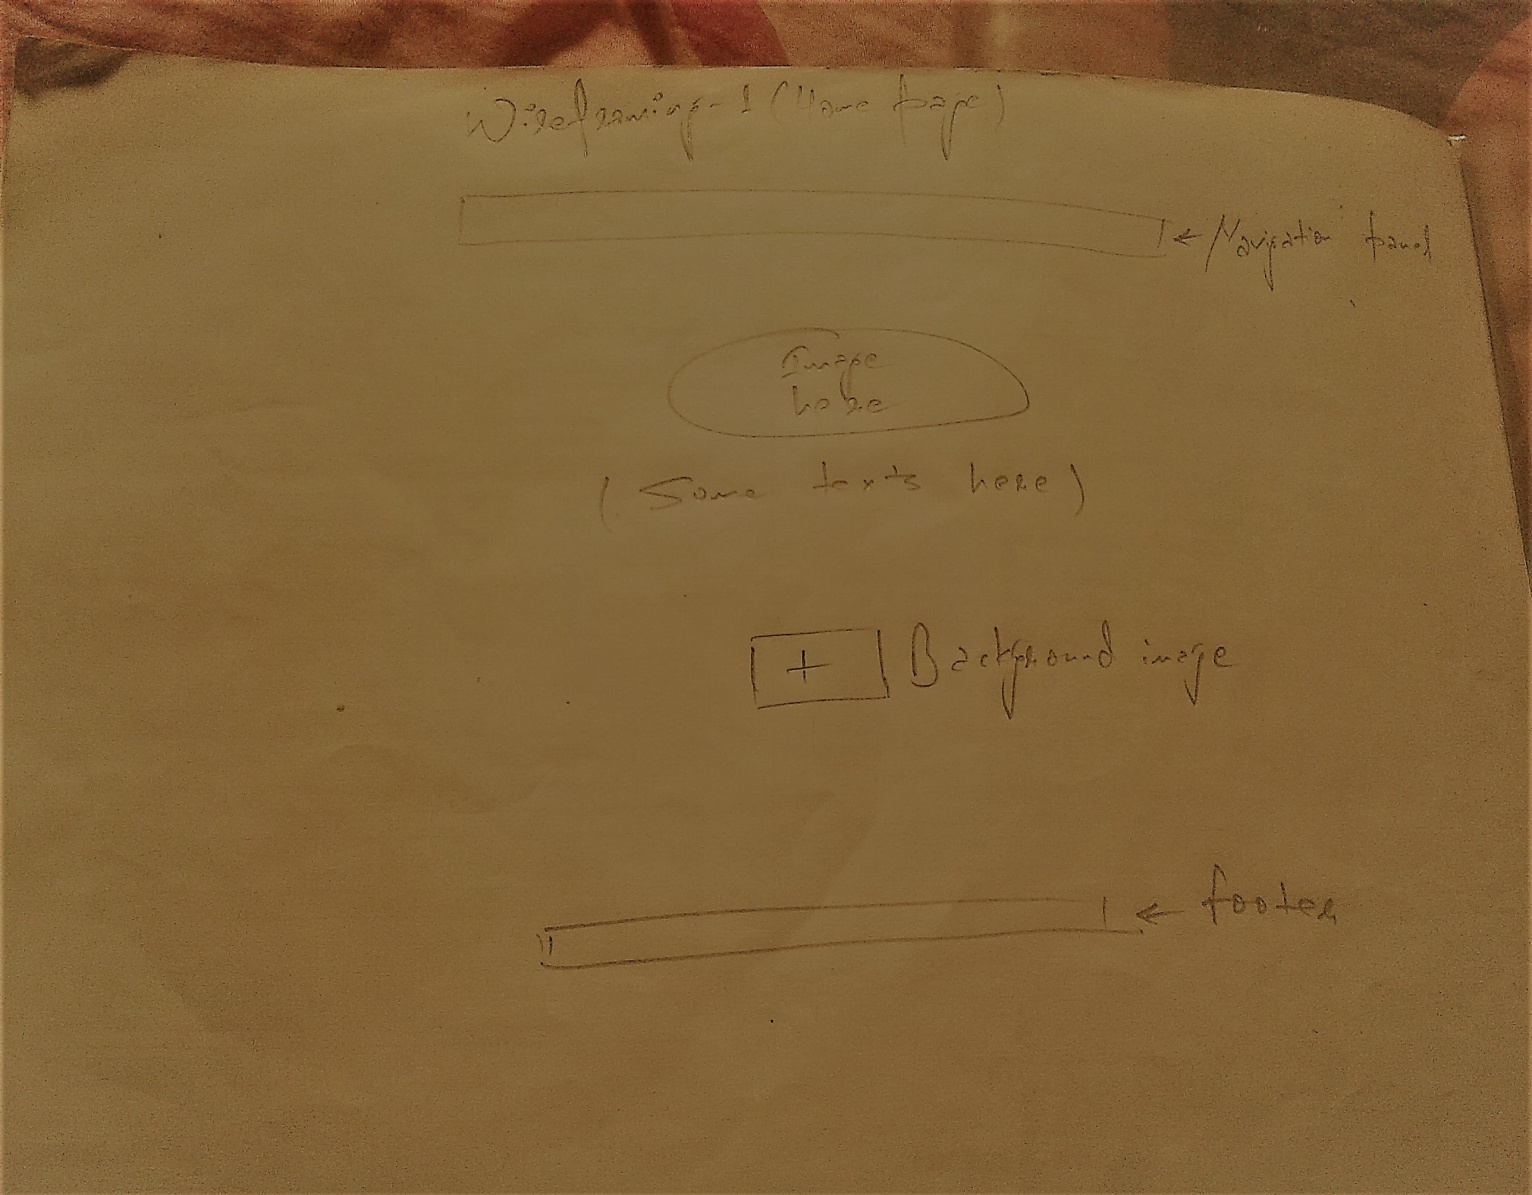 Wireframing-1 (Home page)
← Navigation panel
Image
here
(Some texts here)
+ Background image
← footer